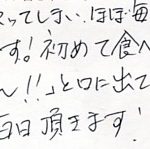 ってしまい、ほぼ毎
す！初めて食べ
ん！！」と口に出て
毎日頂きます！